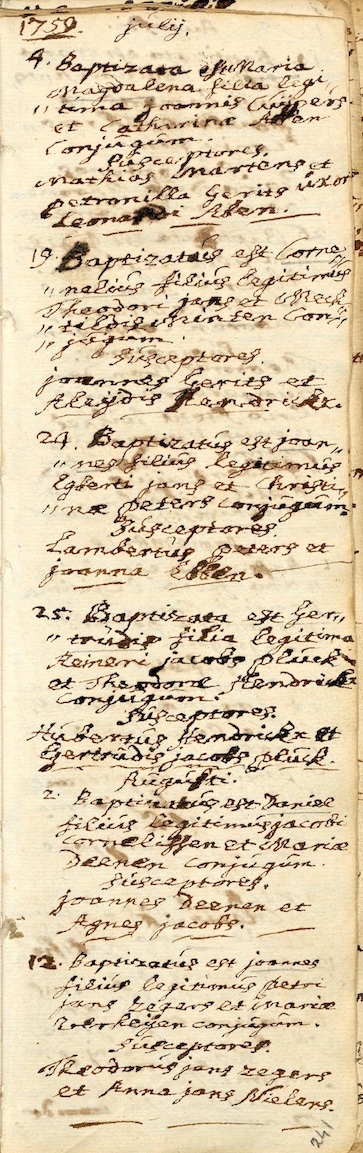 1759 julij.
4. Baptizata est Maria
Magdalena filia legi
"tima joannis Cuijpers
et Catharinæ
Conjugum.
Susceptores.
Mathias Martens et
petronilla Gerits uxor
Leonardi
19. Baptizatus est Corne
"nelius filius legitimus
Theodori jans et Mech
"tildis Con"
"jugum.
Susceptores.
joannes Gerits et
Aleydis Hendrickx.
24. Baptizatus est joan"
"nes filius legitimus
Egberti jans et Christi"
"næ peters Conjugum.
Susceptores.
Lambertus peters et
joanna Ebben.
25. Baptizata est Ger"
"trudis filia legitima
Reineri jacobs pluck
et Theodoræ Hendrickx
Conjugum.
Susceptores.
Hubertus Hendrickx et
Gertrudis jacobs pluck.
Augusti.
2. Baptizatus est Daniel
filius legitimus jacobi
Cornelissen et Mariæ
Deenen Conjugum.
Susceptores.
joannes Deenen et
Agnes jacobs.
12. Baptizatus est joannes
filius legitimus petri
jans Zegers et Mariæ
Verheijen conjugum.
Susceptores.
Theodorus jans zegers
et Anna jans
241